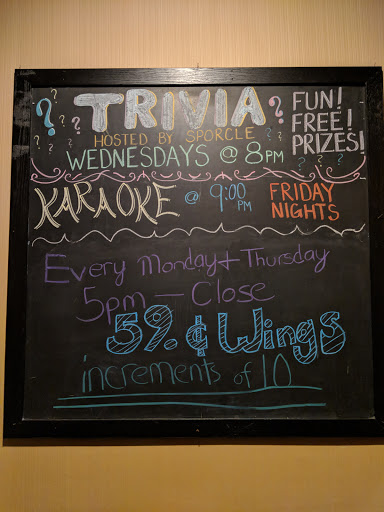 TRIVIA
HOSTED BY SPORCLE
WEDNESDAYS @ 8PM
FUN!
FREE!
PRIZES!
KARAOKE @ 9:00 PM
FRIDAY
NIGHTS
Every Monday + Thursday
5pm — Close
59.¢ Wings
increments of 10